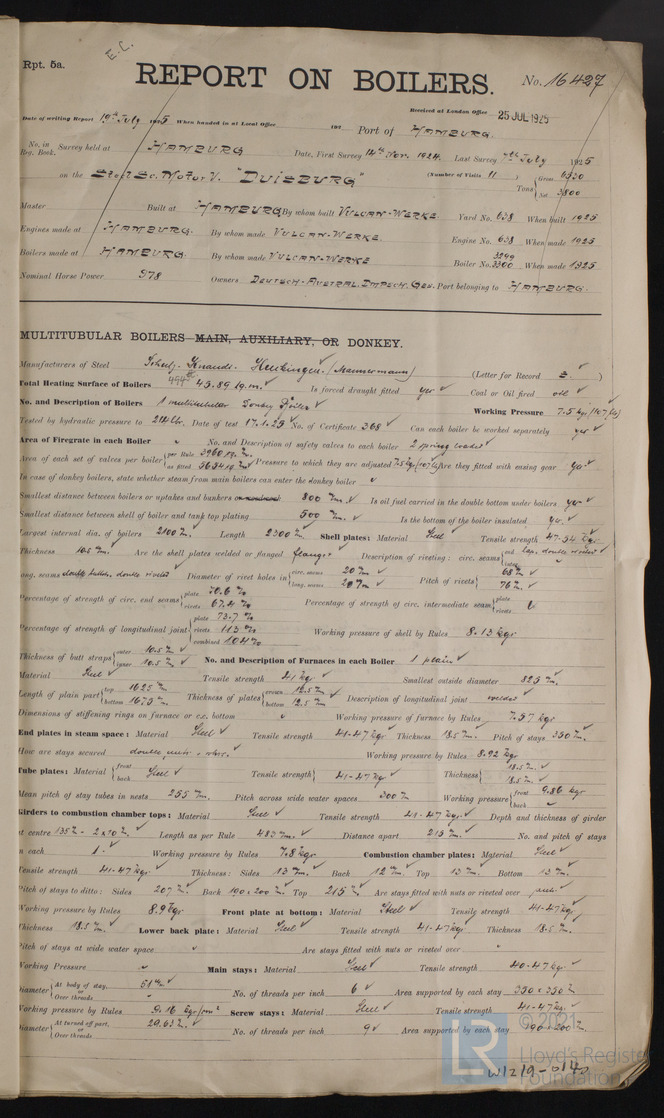 Rpt. 5a.
E.C.
REPORT ON BOILERS.
No. 16427
Received at London Office 25 JUL 1925
Date of writing Report 19th July 1925 When handed in at Local Office 192 Port of HAMBURG.
No. in Reg. Book. Survey held at HAMBURG Date, First Survey 14th Nov. 1924. Last Survey July 1925
on the Steel Sc. Motor V. "DUISBURG" (Number of Visits 11) Tons { Gross 6330 Net 3800
Master Built at HAMBURG By whom built VULCAN-WERKE Yard No. 638 When built 1925
Engines made at HAMBURG. By whom made VULCAN-WERKE. Engine No. 638 When made 1925
Boilers made at HAMBURG. By whom made VULCAN-WERKE Boiler No. 3299 3300 When made 1925
Nominal Horse Power 978 Owners DEUTSCH-AUSTRAL. DMPFSCH. GES. Port belonging to HAMBURG.
MULTITUBULAR BOILERS MAIN, AUXILIARY, OR DONKEY.
Manufacturers of Steel Schulz Knaudt Huckingen (Mannesmann) (Letter for Record S.)
Total Heating Surface of Boilers 45.89 qm. Is forced draught fitted yes Coal or Oil fired oil
No. and Description of Boilers 1 multitubular Donkey Boiler Working Pressure 7.5 kg (107 lbs)
Tested by hydraulic pressure to 214 lbs. Date of test 17.1.25 No. of Certificate 368 Can each boiler be worked separately yes
Area of Firegrate in each Boiler " No. and Description of safety valves to each boiler 2 spring loaded
Area of each set of valves per boiler { per Rule 3960 as fitted 5654 Pressure to which they are adjusted 7.5 kg (107 lbs) Are they fitted with easing gear yes.
In case of donkey boilers, state whether steam from main boilers can enter the donkey boiler
Smallest distance between boilers or uptakes and bunkers or woodwork 800 m. Is oil fuel carried in the double bottom under boilers yes
Smallest distance between shell of boiler and tank top plating 500 m. Is the bottom of the boiler insulated yes.
Largest internal dia. of boilers 2100 m. Length 2300 m. Shell plates: Material Steel Tensile strength 47-54 kgr.
Thickness 10.5 m. Are the shell plates welded or flanged flanged Description of riveting: circ. seams { end lap, double riveted inter. "
long. seams double butts. double riveted Diameter of rivet holes in { circ. seams 20 m long. seams 20 m Pitch of rivets { 68 m 76 m.
Percentage of strength of circ. end seams { plate 70.6 % rivets 67.4 % Percentage of strength of circ. intermediate seam { plate rivets
Percentage of strength of longitudinal joint { plate 73.7 % rivets 113 % combined 104 % Working pressure of shell by Rules 8.13 kgr
Thickness of butt straps { outer 10.5 m inner 10.5 m No. and Description of Furnaces in each Boiler 1 plain
Material Steel Tensile strength 41 kgr Smallest outside diameter 825 m.
Length of plain part { top 1625 m bottom 1675 m Thickness of plates { crown 12.5 m bottom 12.5 Description of longitudinal joint welded
Dimensions of stiffening rings on furnace or c.c. bottom Working pressure of furnace by Rules 7.57 kgr
End plates in steam space: Material Steel Tensile strength 41-47 kgr Thickness 18.5 m. Pitch of stays 350 m.
How are stays secured double nuts Working pressure by Rules 8.92 kgr
Tube plates: Material { front back Steel Tensile strength { 41-47 kgr Thickness { 18.5 m. 18.5 m.
Mean pitch of stay tubes in nests 255 m. Pitch across wide water spaces 300 m Working pressure { front 9.86 kgr back "
Girders to combustion chamber tops: Material Steel Tensile strength 41-47 kgr. Depth and thickness of girder
at centre 135 m - 2x10 m. Length as per Rule 483 m. Distance apart 215 m. No. and pitch of stays
in each 1. Working pressure by Rules 7.8 kgr Combustion chamber plates: Material Steel
Tensile strength 41-47 kgr. Thickness: Sides 13 m. Back 12 m. Top 13 m. Bottom 13 m.
Pitch of stays to ditto: Sides 207 m. Back 190 x 200 m. Top 215 m Are stays fitted with nuts or riveted over
Working pressure by Rules 8.9 kgr Front plate at bottom: Material Steel Tensile strength 41-47 kgr
Thickness 18.5 m. Lower back plate: Material Steel Tensile strength 41-47 kgr. Thickness 18.5 m.
Pitch of stays at wide water space " Are stays fitted with nuts or riveted over "
Working Pressure " Main stays: Material Steel Tensile strength 40-47 kgr.
Diameter { At body of stay, or Over threads 51 m No. of threads per inch 6 Area supported by each stay 350 x 350 m
Working pressure by Rules 9.16 kgr/cm² Screw stays: Material Steel Tensile strength 41-47 kgr.
Diameter { At turned off part, or Over threads 29.63 m. No. of threads per inch 9 Area supported by each stay 190 x 200 m.
© 2021
LR
Lloyd's Register
Foundation
W1219-0140